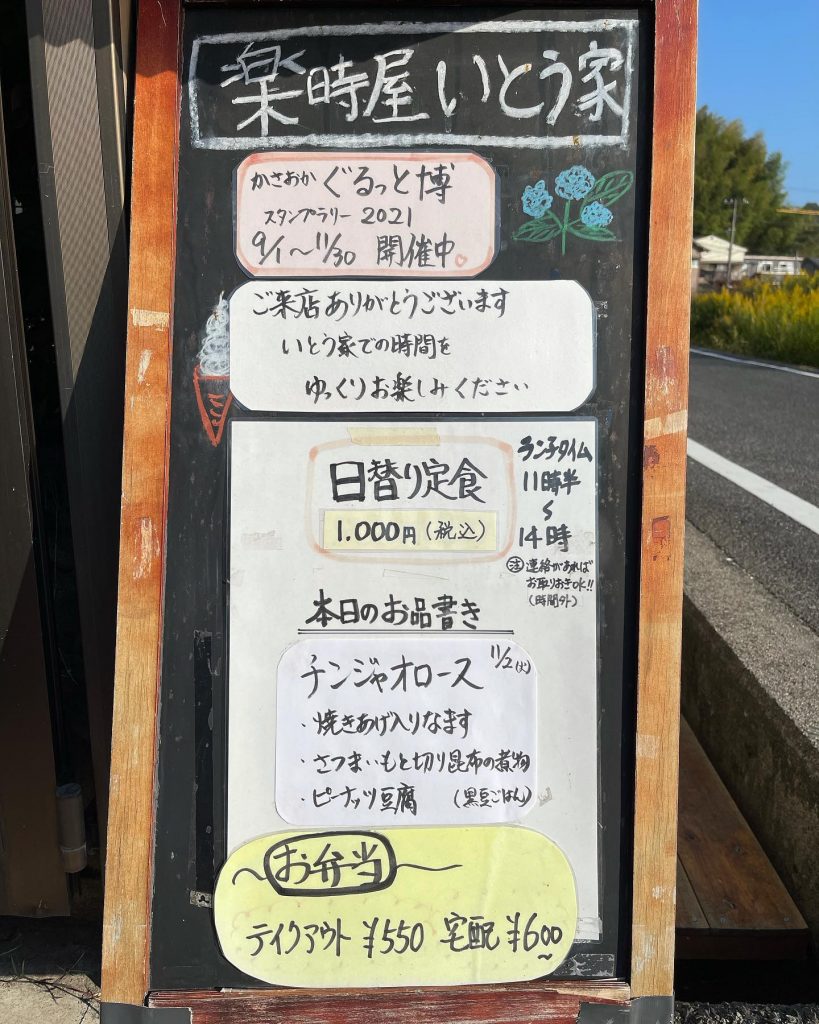 楽時屋 いとう家
かさおか ぐるっと博
スタンプラリー 2021
9/1〜11/30 開催中
ご来店ありがとうございます
いとう家での時間を
ゆっくりお楽しみください
日替り定食
1.000円(税込)
ランチタイム
11時半
〜
14時
㊟連絡があれば
お取りおきOK!!
(時間外)
本日のお品書き
11/2(火)
チンジャオロース
・焼きあげ入りなます
・さつまいもと切り昆布の煮物
・ピーナッツ豆腐 (黒豆ごはん)
〜お弁当〜
テイクアウト ¥550 宅配 ¥600〜